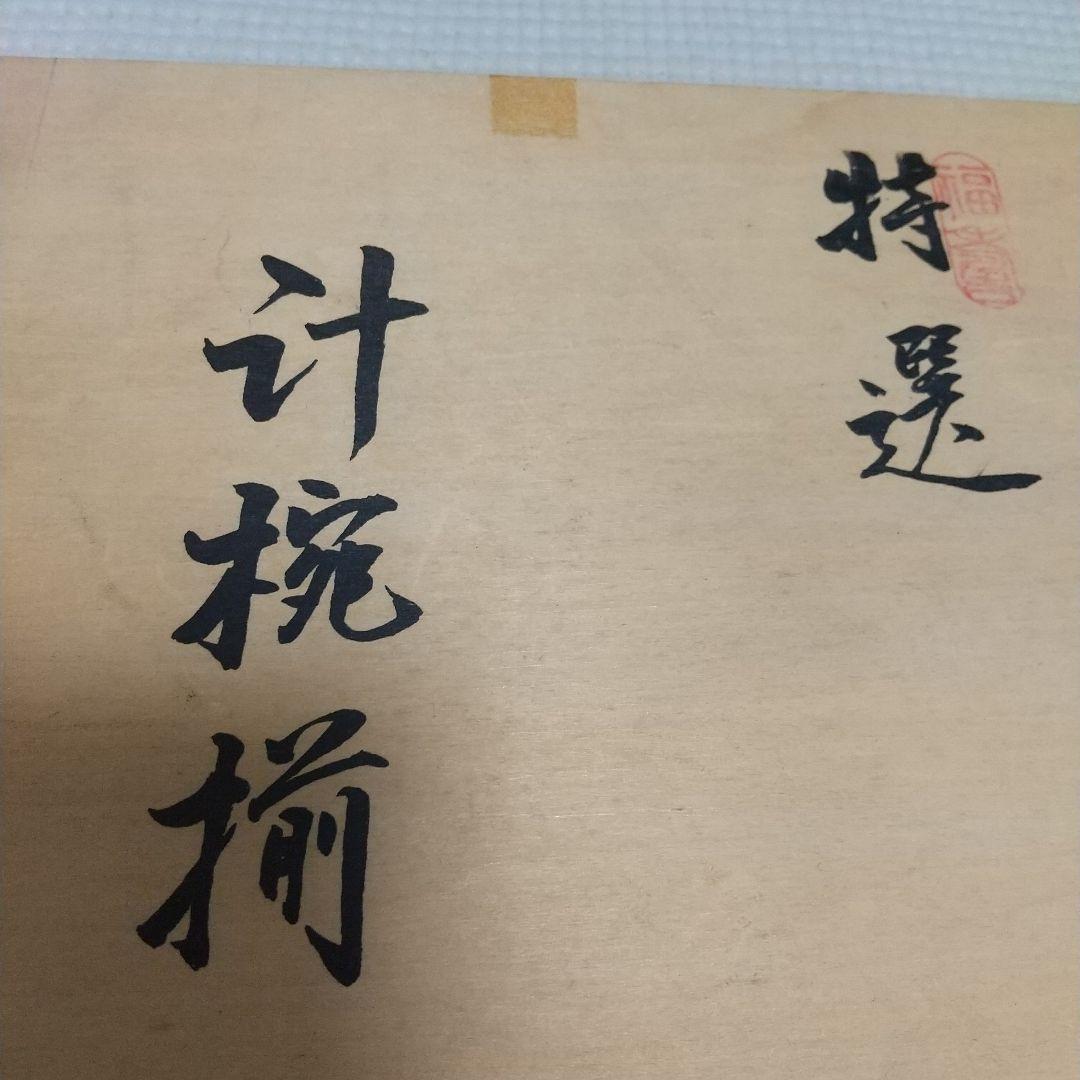 特選
计椀揃